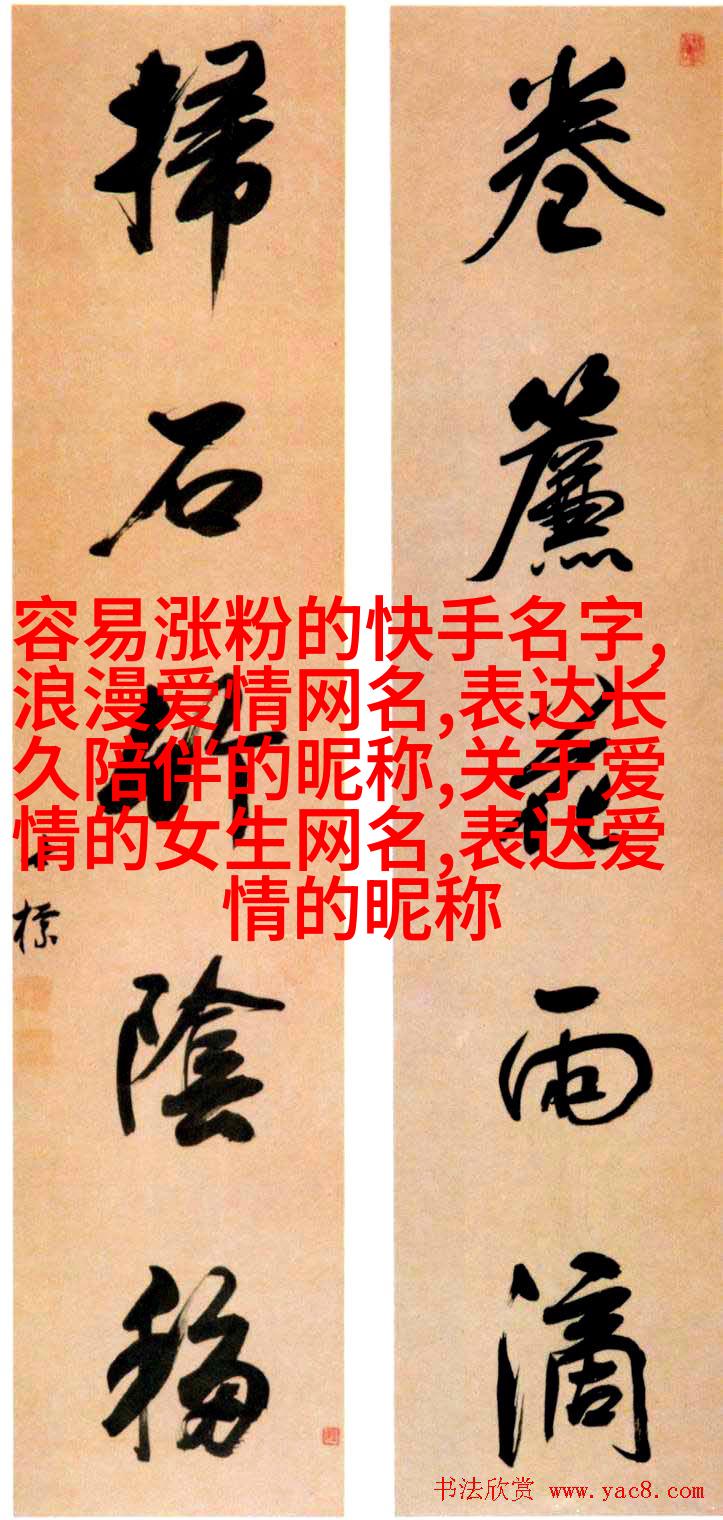 卷簾花雨滴
掃石竹陰移
容易涨粉的快手名字,
浪漫爱情网名,表达长
久陪伴的昵称,关于爱
情的女生网名,表达爱
情的昵称
书法欣赏 www.yac8.com